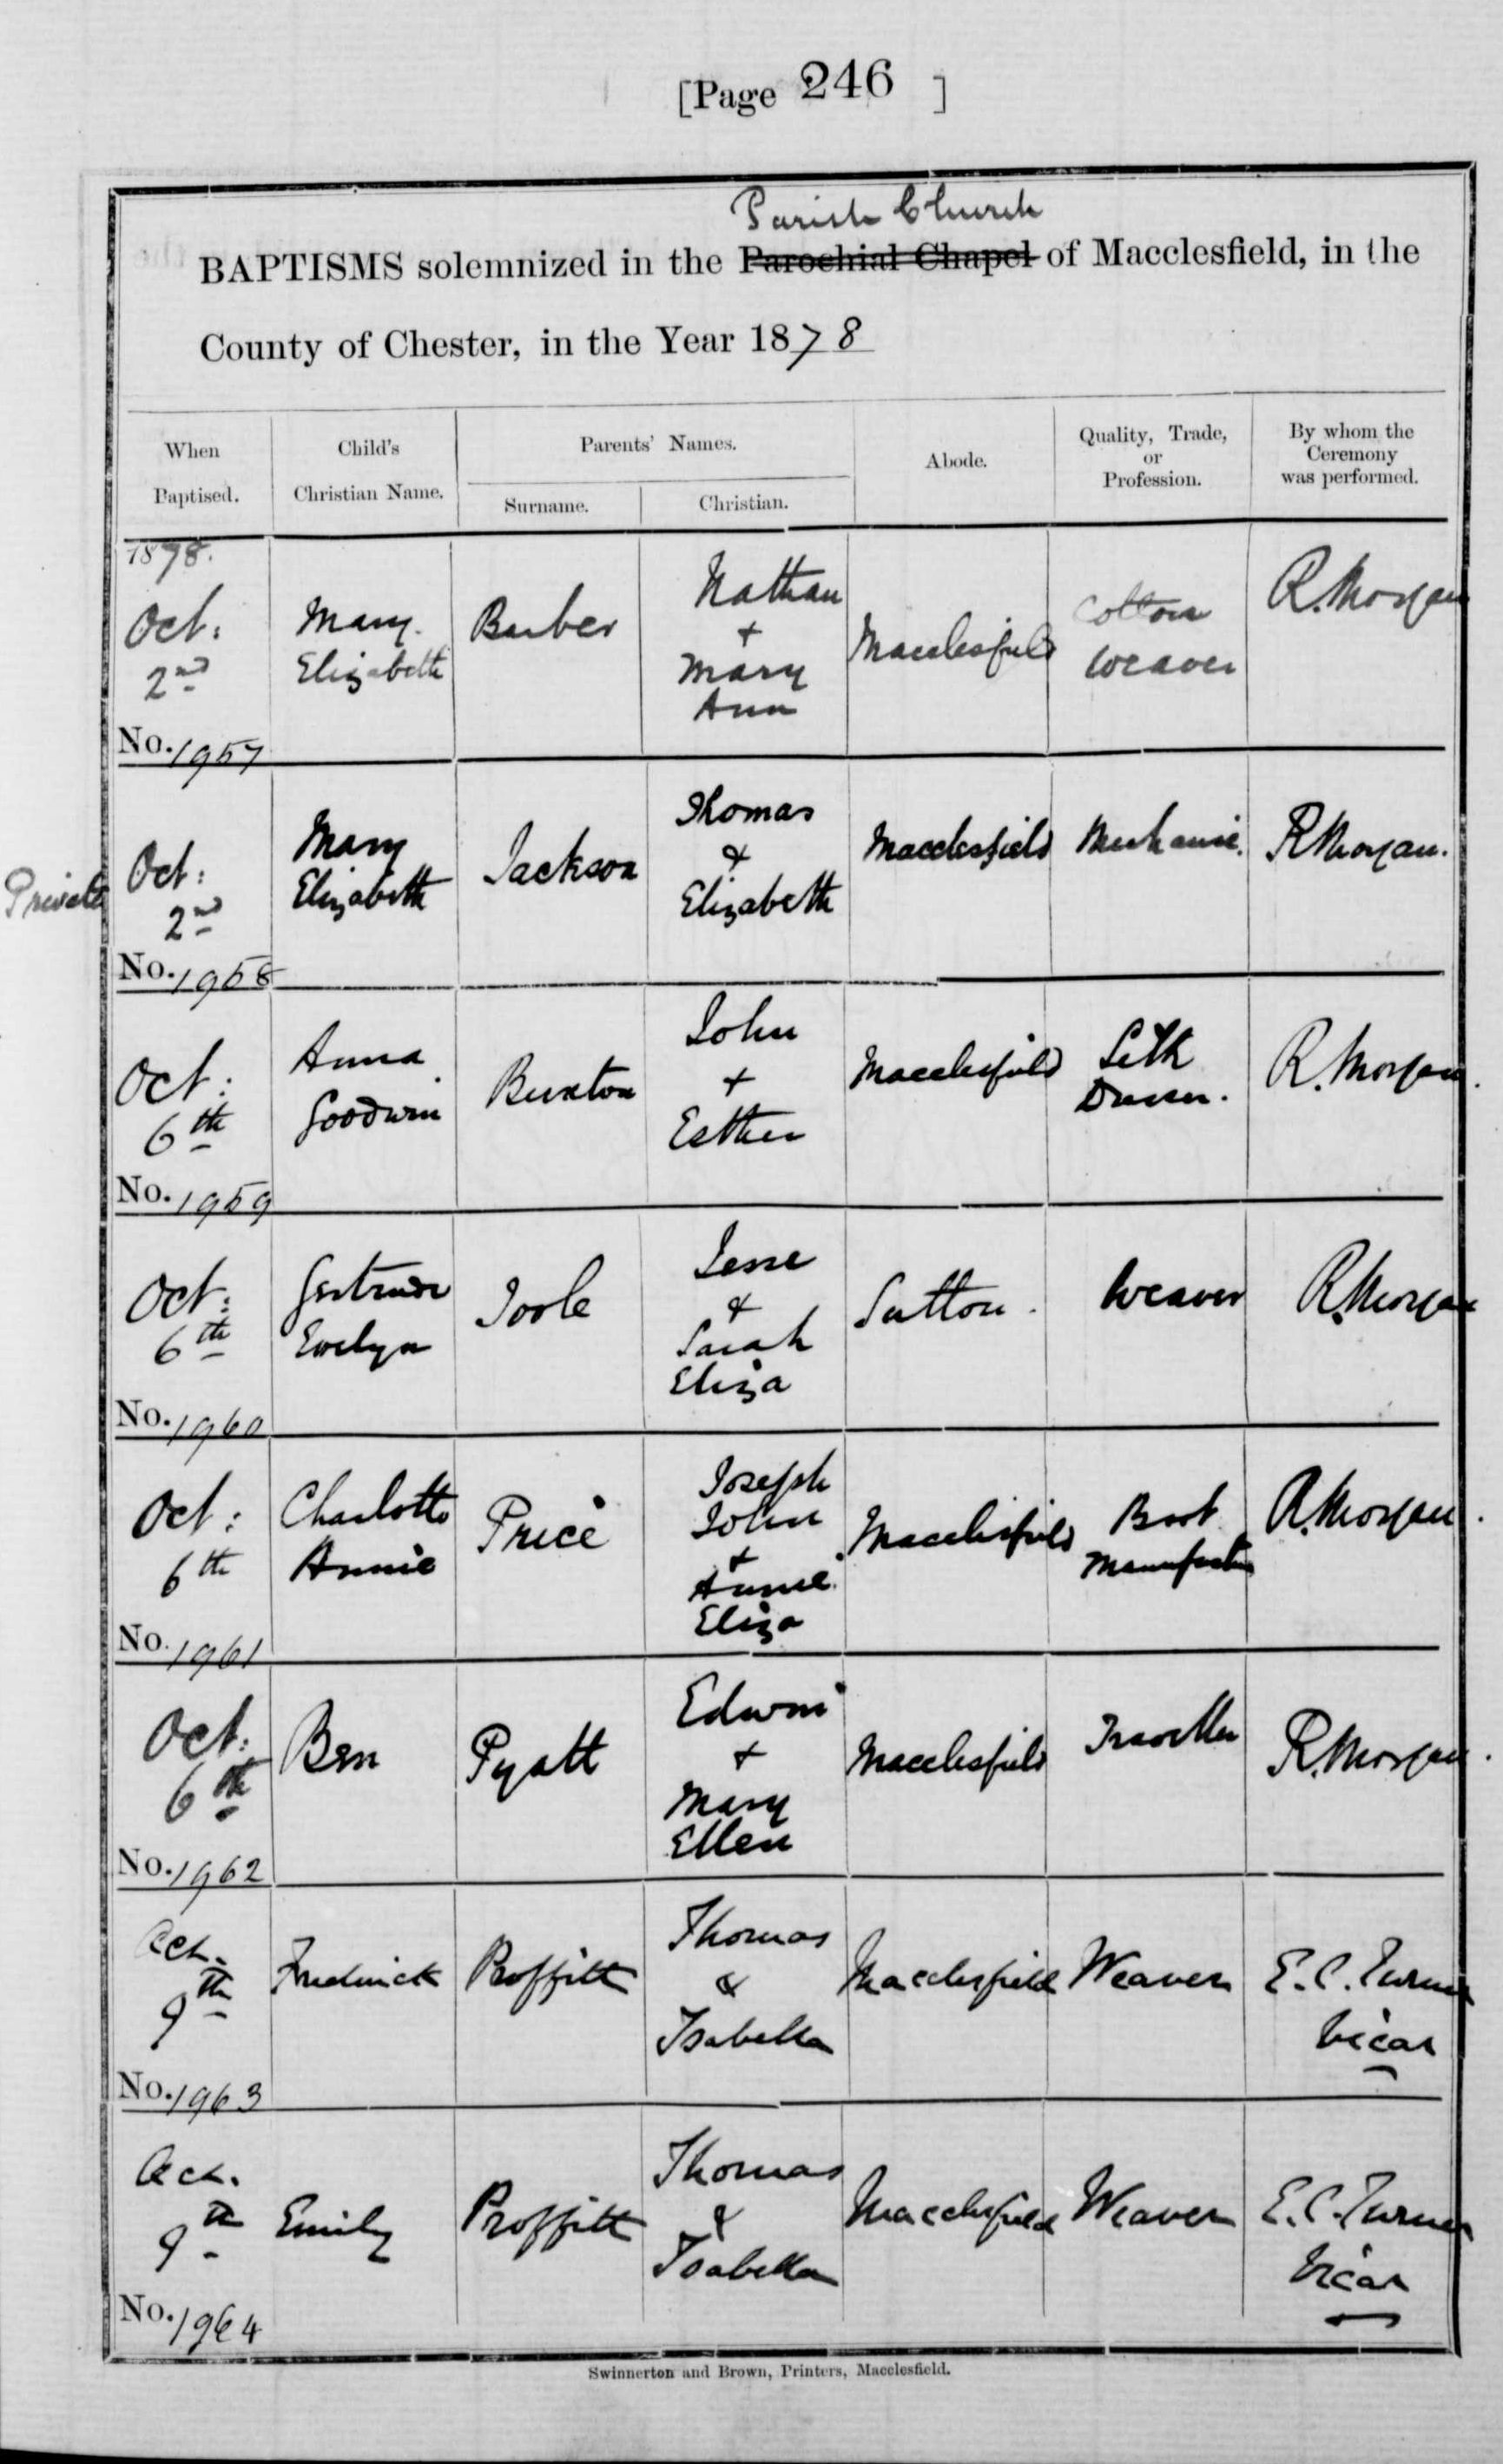 [Page 246 ]
Parish Church
BAPTISMS solemnized in the Parochial Chapel of Macclesfield, in the
County of Chester, in the Year 1878
When
Baptised.
Child's
Christian Name.
Parents' Names.
Surname.
Christian.
Abode.
Quality, Trade,
or
Profession.
By whom the
Ceremony
was performed.
1878.
Oct:
2nd
No. 1957
Mary
Elizabeth
Barber
Nathan
+
Mary
Ann
Macclesfield
Cotton
Weaver
R. Morgan
Private
Oct:
2nd
No. 1958
Mary
Elizabeth
Jackson
Thomas
&
Elizabeth
Macclesfield
Mechanic.
R Morgan.
Oct:
6th
No. 1959
Anna
Goodwin
Buxton
John
+
Esther
Macclesfield
Silk
Dresser.
R. Morgan.
Oct:
6th
No. 1960
Gertrude
Evelyn
Toole
Jesse
&
Sarah
Eliza
Sutton.
Weaver
R. Morgan
Oct:
6th
No. 1961
Charlotte
Annie
Price
Joseph
John
+
Annie
Eliza
Macclesfield
Boot
Manufacturer
R. Morgan.
Oct:
6th
No. 1962
Ben
Pyatt
Edwin
+
Mary
Ellen
Macclesfield
Traveller
R. Morgan.
Oct.
9th
No. 1963
Frederick
Proffitt
Thomas
&
Isabella
Macclesfield
Weaver
E. C. Turner
Vicar
Oct.
9th
No. 1964
Emily
Proffitt
Thomas
&
Isabella
Macclesfield
Weaver
E. C. Turner
Vicar
Swinnerton and Brown, Printers, Macclesfield.